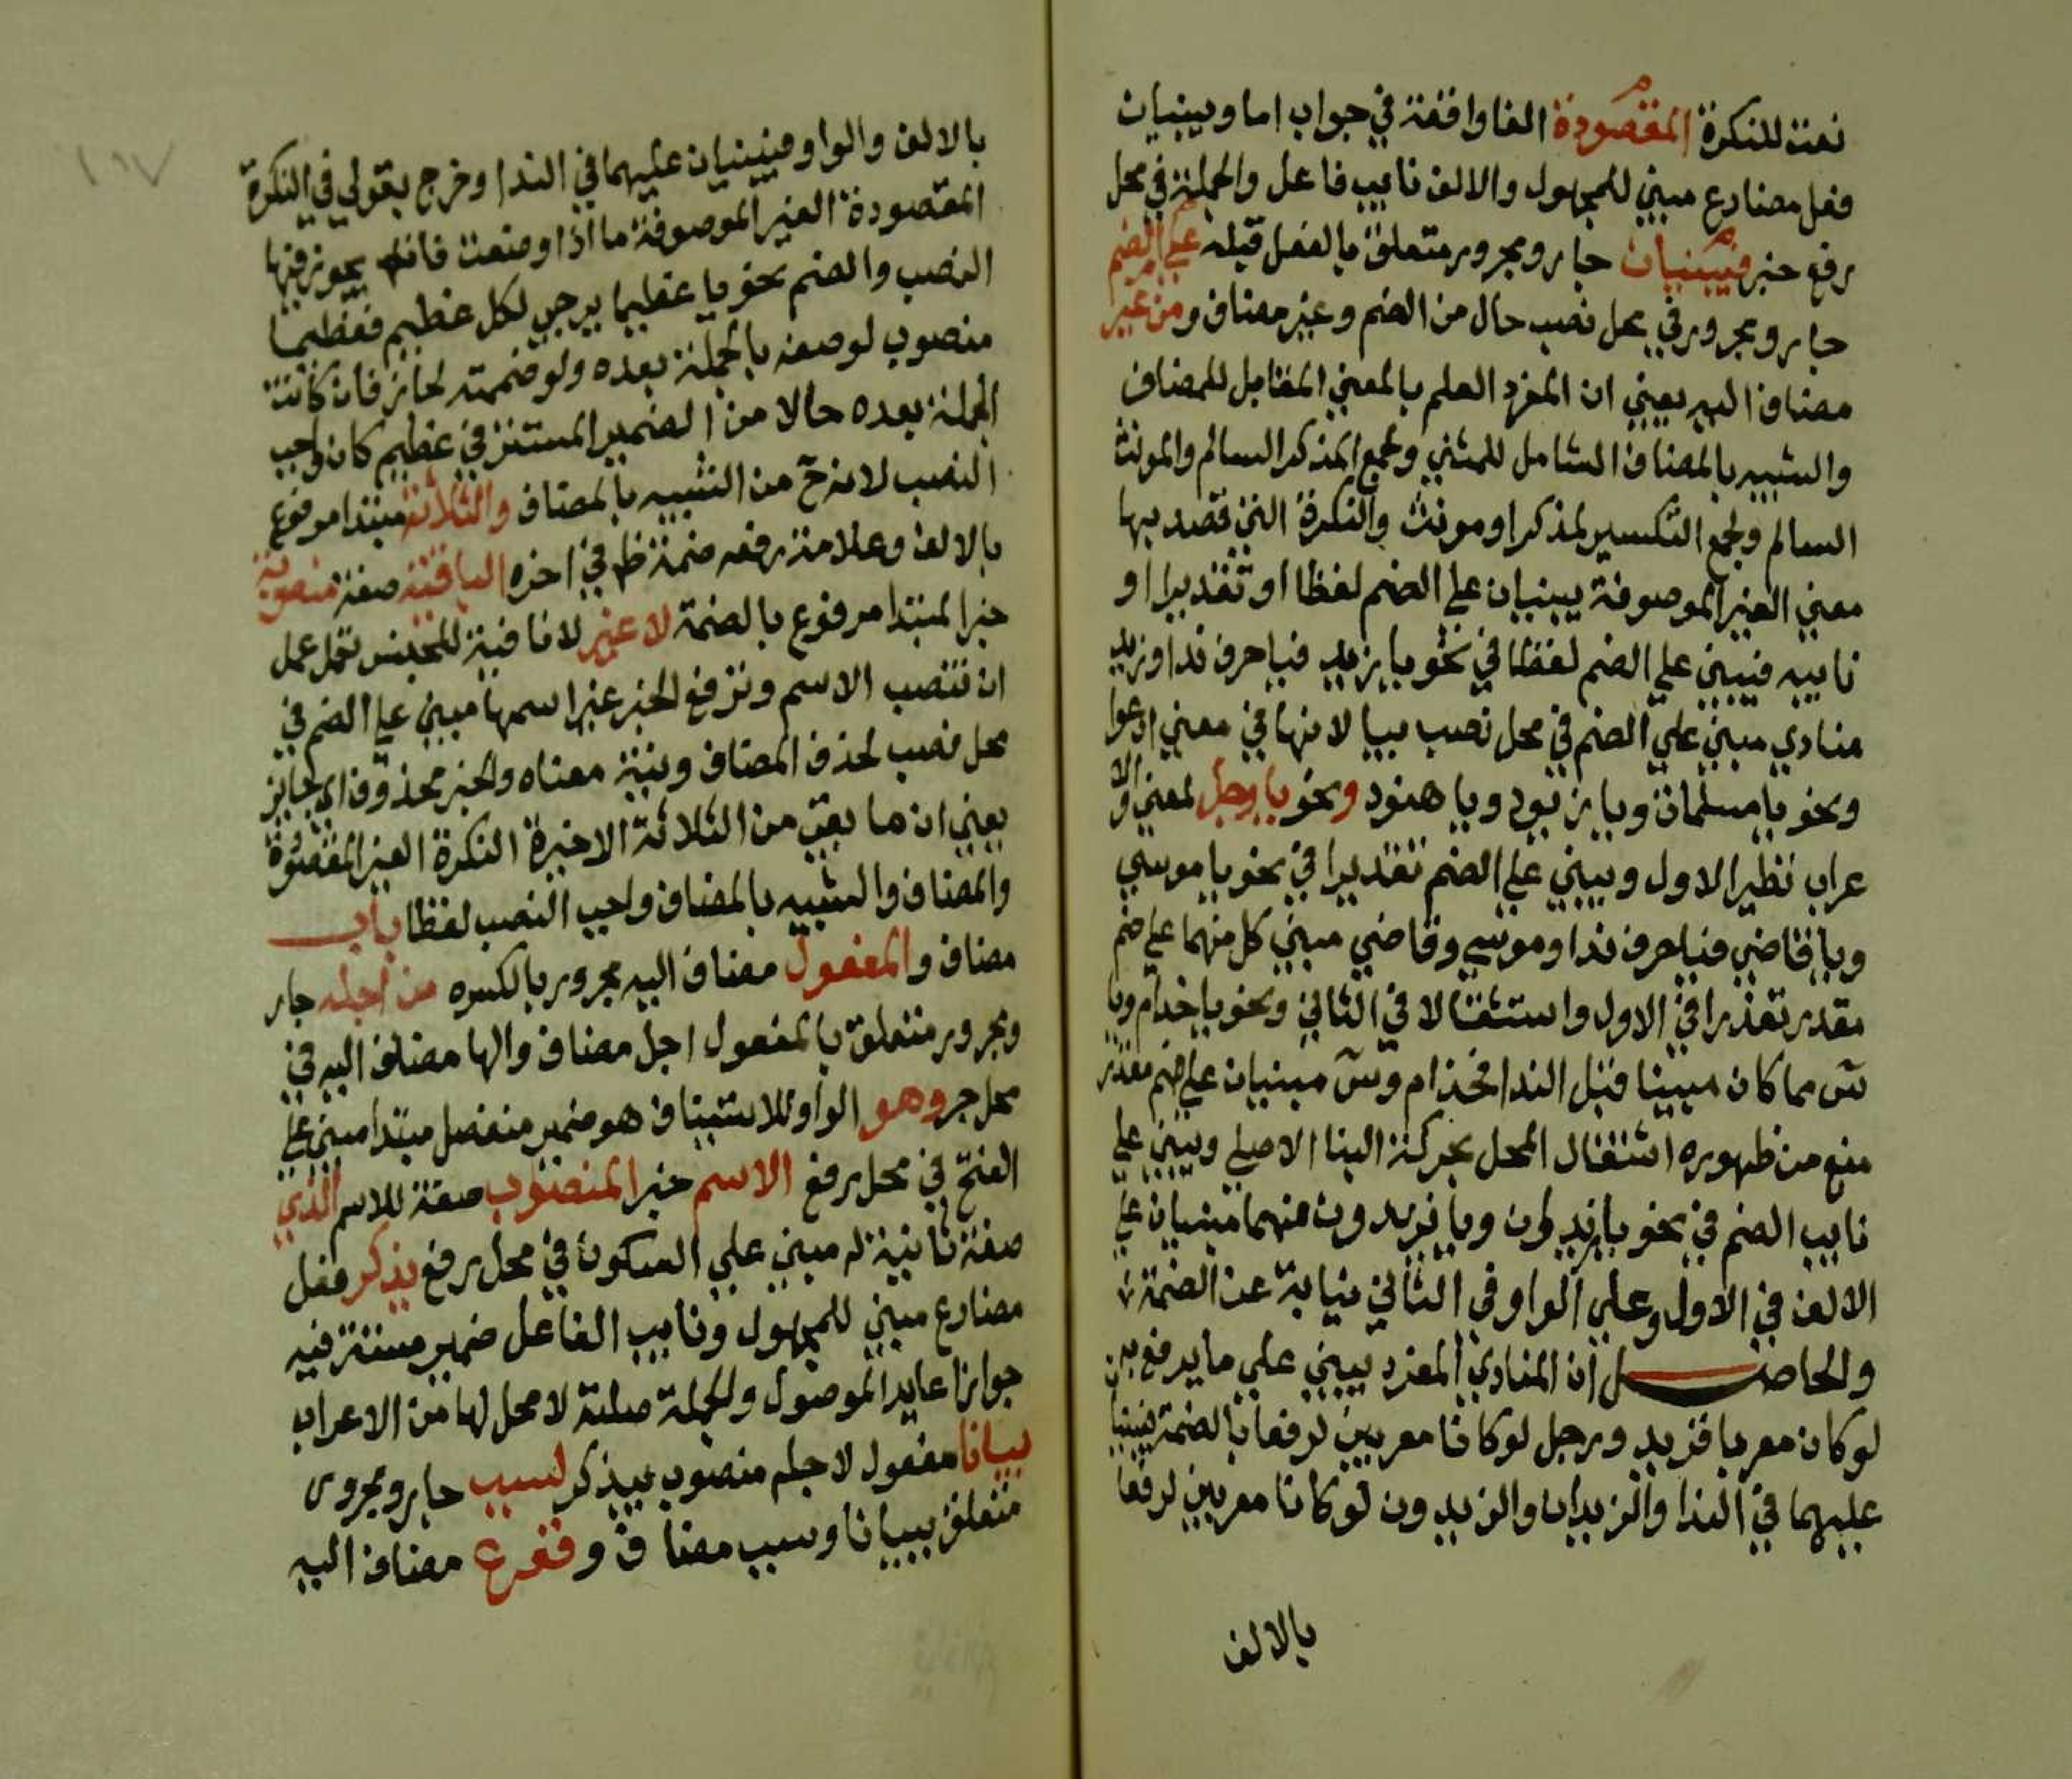 نعت للنكرة المقصودة الفا واقفة في جواب اما ويبنيان
فعل مضارع مبني للمجهول والالف نايب فاعل والجملة في محل
رفع خبر فيبنيان جار ومجرور متعلق بالفعل قبله على الضم
جار ومجرور في محل نصب حال من الضم وغير مضاف و من غير
مضاف اليه يعني ان المفرد العلم بالمعني المقابل للمضاف
والشبيه بالمضاف الشامل للمثني وجمع المذكر السالم والمونث
السالم ولجمع التكسير لمذكر او مونث والنكرة التي قصد بها
معني الغير الموصوفة يبنيان على الضم لفظا او تقديرا او
نايبه فيبني علي الضم لفظا في نحو يا زيد فيا حرف ندا وزيد
منادي مبني علي الضم في محل نصب بيا لانها في معني ادعوا
ونحو يا مسلمات ويا زيود ويا هنود ونحو يا رجل لمعني الاو
عراب نظير الاول ويبني علي الضم تقديرا في نحو يا موسي
ويا قاضي فيا حرف ندا وموسي وقاضي مبني كل منهما علي ضم
مقدر تعذرا في الاول واستثقالا في الثاني ونحو يا خذام ويا
سٓ مما كان مبينا قبل الندا فخذام وسٓ مبنيان علي ضم مقدر
منع من ظهوره اشتغال المحل بحركة البنا الاصلي ويبني علي
نايب الضم في نحو يا زيدان ويا زيدون منهما مبنيان علي
الالف في الاول وعلي الواو في الثاني نيابة عن الضمة
والحاصل ان المنادي المفرد يبني علي ما يرفع به ن
لو كان معربا فزيد ورجل لو كانا معربين لرفعا بالضمة فيبنيا
عليهما في الندا والزيدان والزيدون لو كانا معربين لرفعا
بالالف
١٠٧
بالالف والواو فيبنيان عليهما في الندا وخرج بقولي في النكرة
المقصودة الغير الموصوفة ما اذا وصفت فانه يجوز فيها
النصب والضم نحو يا عظيما يرجي لكل عظيم فعظيما
منصوب لوصفه بالجملة بعده ولو ضممته لجاز فان كانت
الجملة بعده حالا من الضمير المستتر في عظيم كان واجب
النصب لانه ح من الشبيه بالمضاف والثلاثة مبتدا مرفوع
بالالف وعلامة رفعه ضمة ظ في اخره الباقية صفة منصوبة
خبر المبتدا مرفوع بالضمة لا غير لا نافية للجنس تعمل عمل
ان تنصب الاسم وترفع الخبر غير اسمها مبني علي الضم في
محل نصب لحذف المضاف ونية معناه والخبر محذوف اي جايز
يعني ان ما بقي من الثلاثة الاخيرة النكرة الغير المقصودة
والمضاف والشبيه بالمضاف واجب النصب لفظا باب
مضاف والمفعول مضاف اليه مجرور بالكسره من اجله جار
ومجرور متعلق بالمفعول اجل مضاف والها مضاف اليه في
محل جر وهو الواو للاستيناف هو ضمير منفصل مبتدا مبني علي
الفتح في محل رفع الاسم خبر المنصوب صفة للاسم الذي
صفة ثانية له مبني علي السكون في محل رفع يذكر فعل
مضارع مبني للمجهول ونايب الفاعل ضمير مستتر فيه
جوازا عايد الموصول والجملة صلته لا محل لها من الاعراب
بيانا مفعول لاجله منصوب بيذكر لسبب جار ومجرور
متعلق ببيانا وسبب مضاف ووقوع مضاف اليه